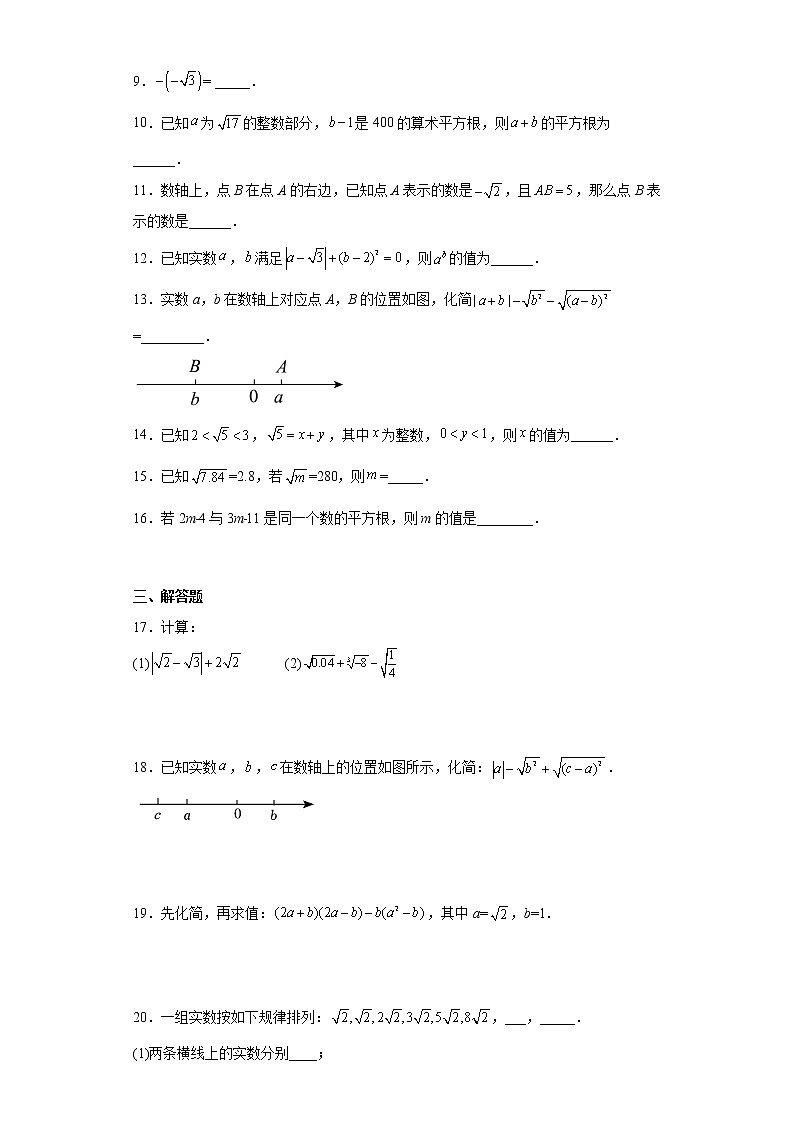 9．−(−√3)= _____．
10．已知a为√17的整数部分，b−1是 400 的算术平方根，则a+b的平方根为
______．
11．数轴上，点B在点A的右边，已知点A表示的数是−√2，且AB=5，那么点B表
示的数是______．
12．已知实数a，b满足|a−√3|+(b−2)²=0，则aᵇ的值为______．
13．实数 a，b 在数轴上对应点 A，B 的位置如图，化简|a+b|−√b²−√(a−b)²
=_________．
B A
b 0 a
14．已知2<√5<3，√5=x+y，其中x为整数，0<y<1，则x的值为______．
15．已知√7.84=2.8，若√m=280，则m=_____．
16．若 2m-4 与 3m-11 是同一个数的平方根，则 m 的值是________．
三、解答题
17．计算：
(1)|√2−√3|+2√2 (2)√0.04+∛−8−√1/4
18．已知实数a，b，c在数轴上的位置如图所示，化简：|a|−√b²+√(c−a)²．
c a 0 b
19．先化简，再求值：(2a+b)(2a−b)−b(a²−b)，其中 a=√2，b=1．
20．一组实数按如下规律排列：√2,√2,2√2,3√2,5√2,8√2，___，_____．
(1)两条横线上的实数分别____；